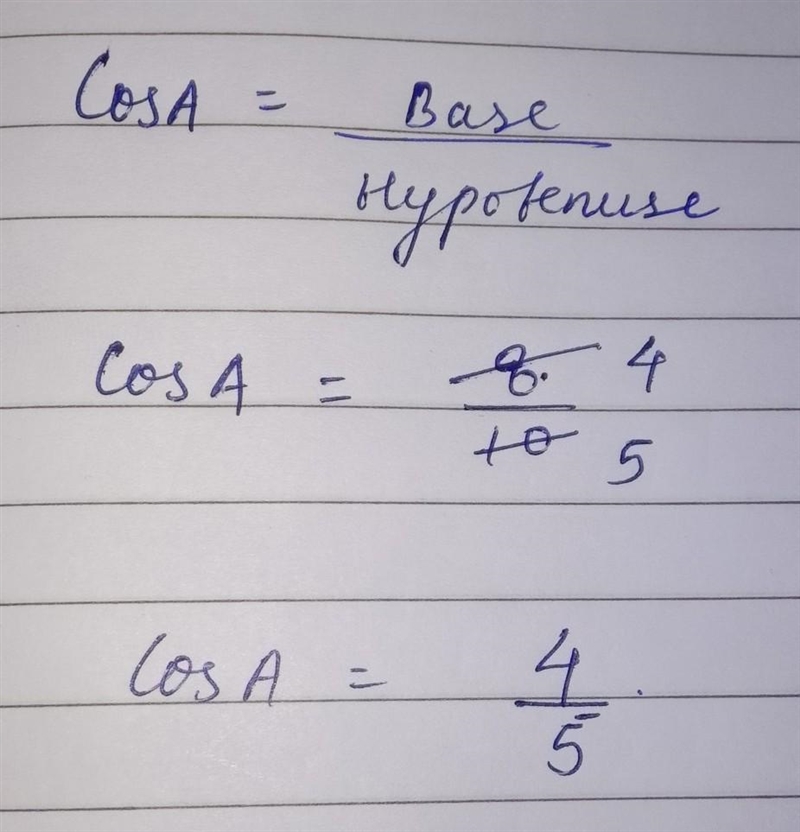 CosA = Base
Hypotenuse
Cos A = 8. 4
10 5
Cos A = 4
5